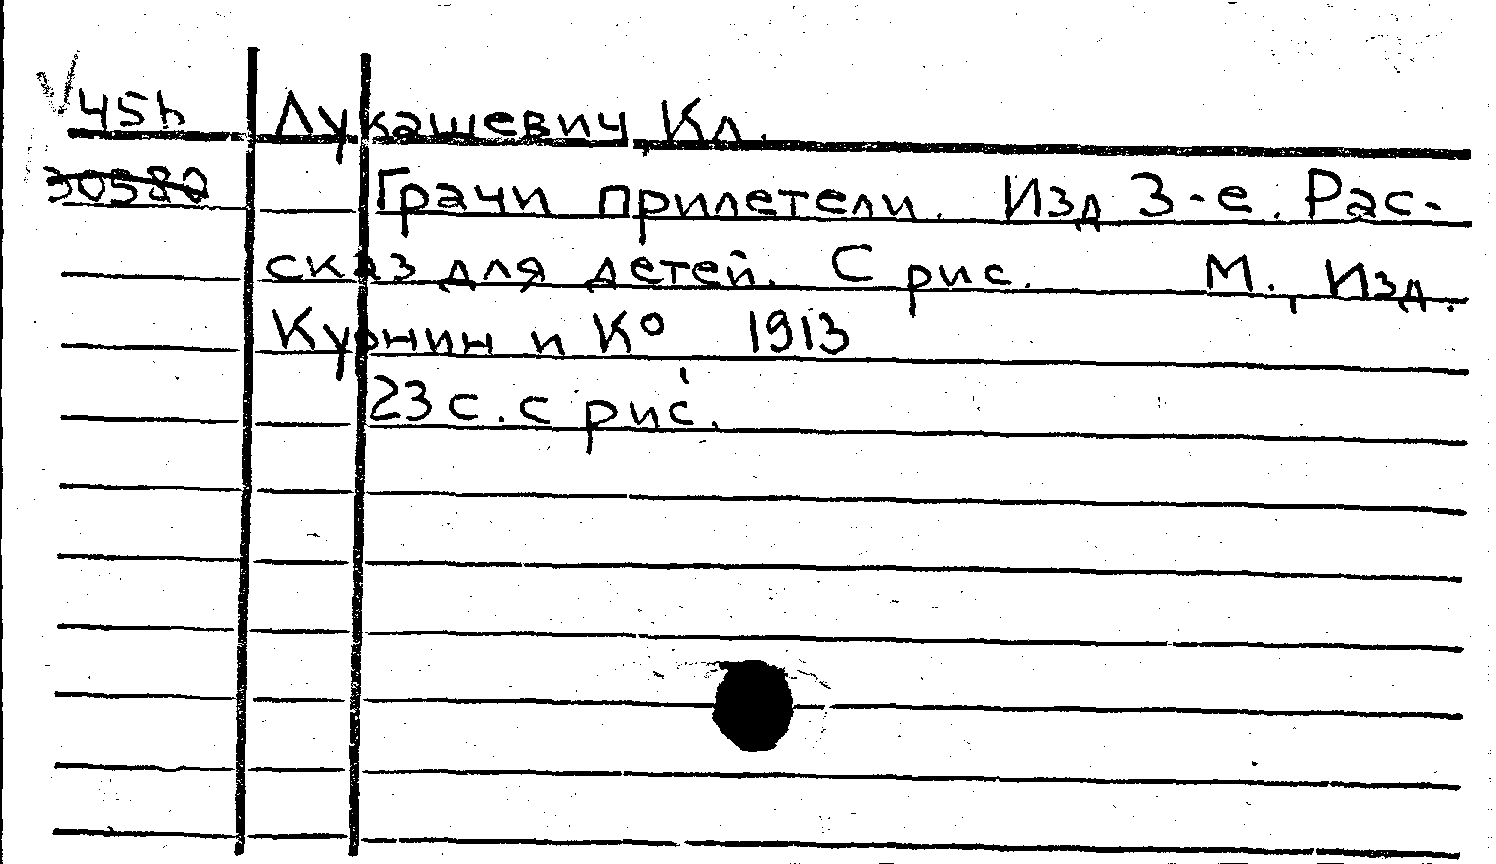 45h Лукашевич, Кл.
30580 Грачи прилетели. Изд 3-е. Рас-
сказ для детей. С рис. М., Изд.
Курнин и К° 1913
23 с. с рис.